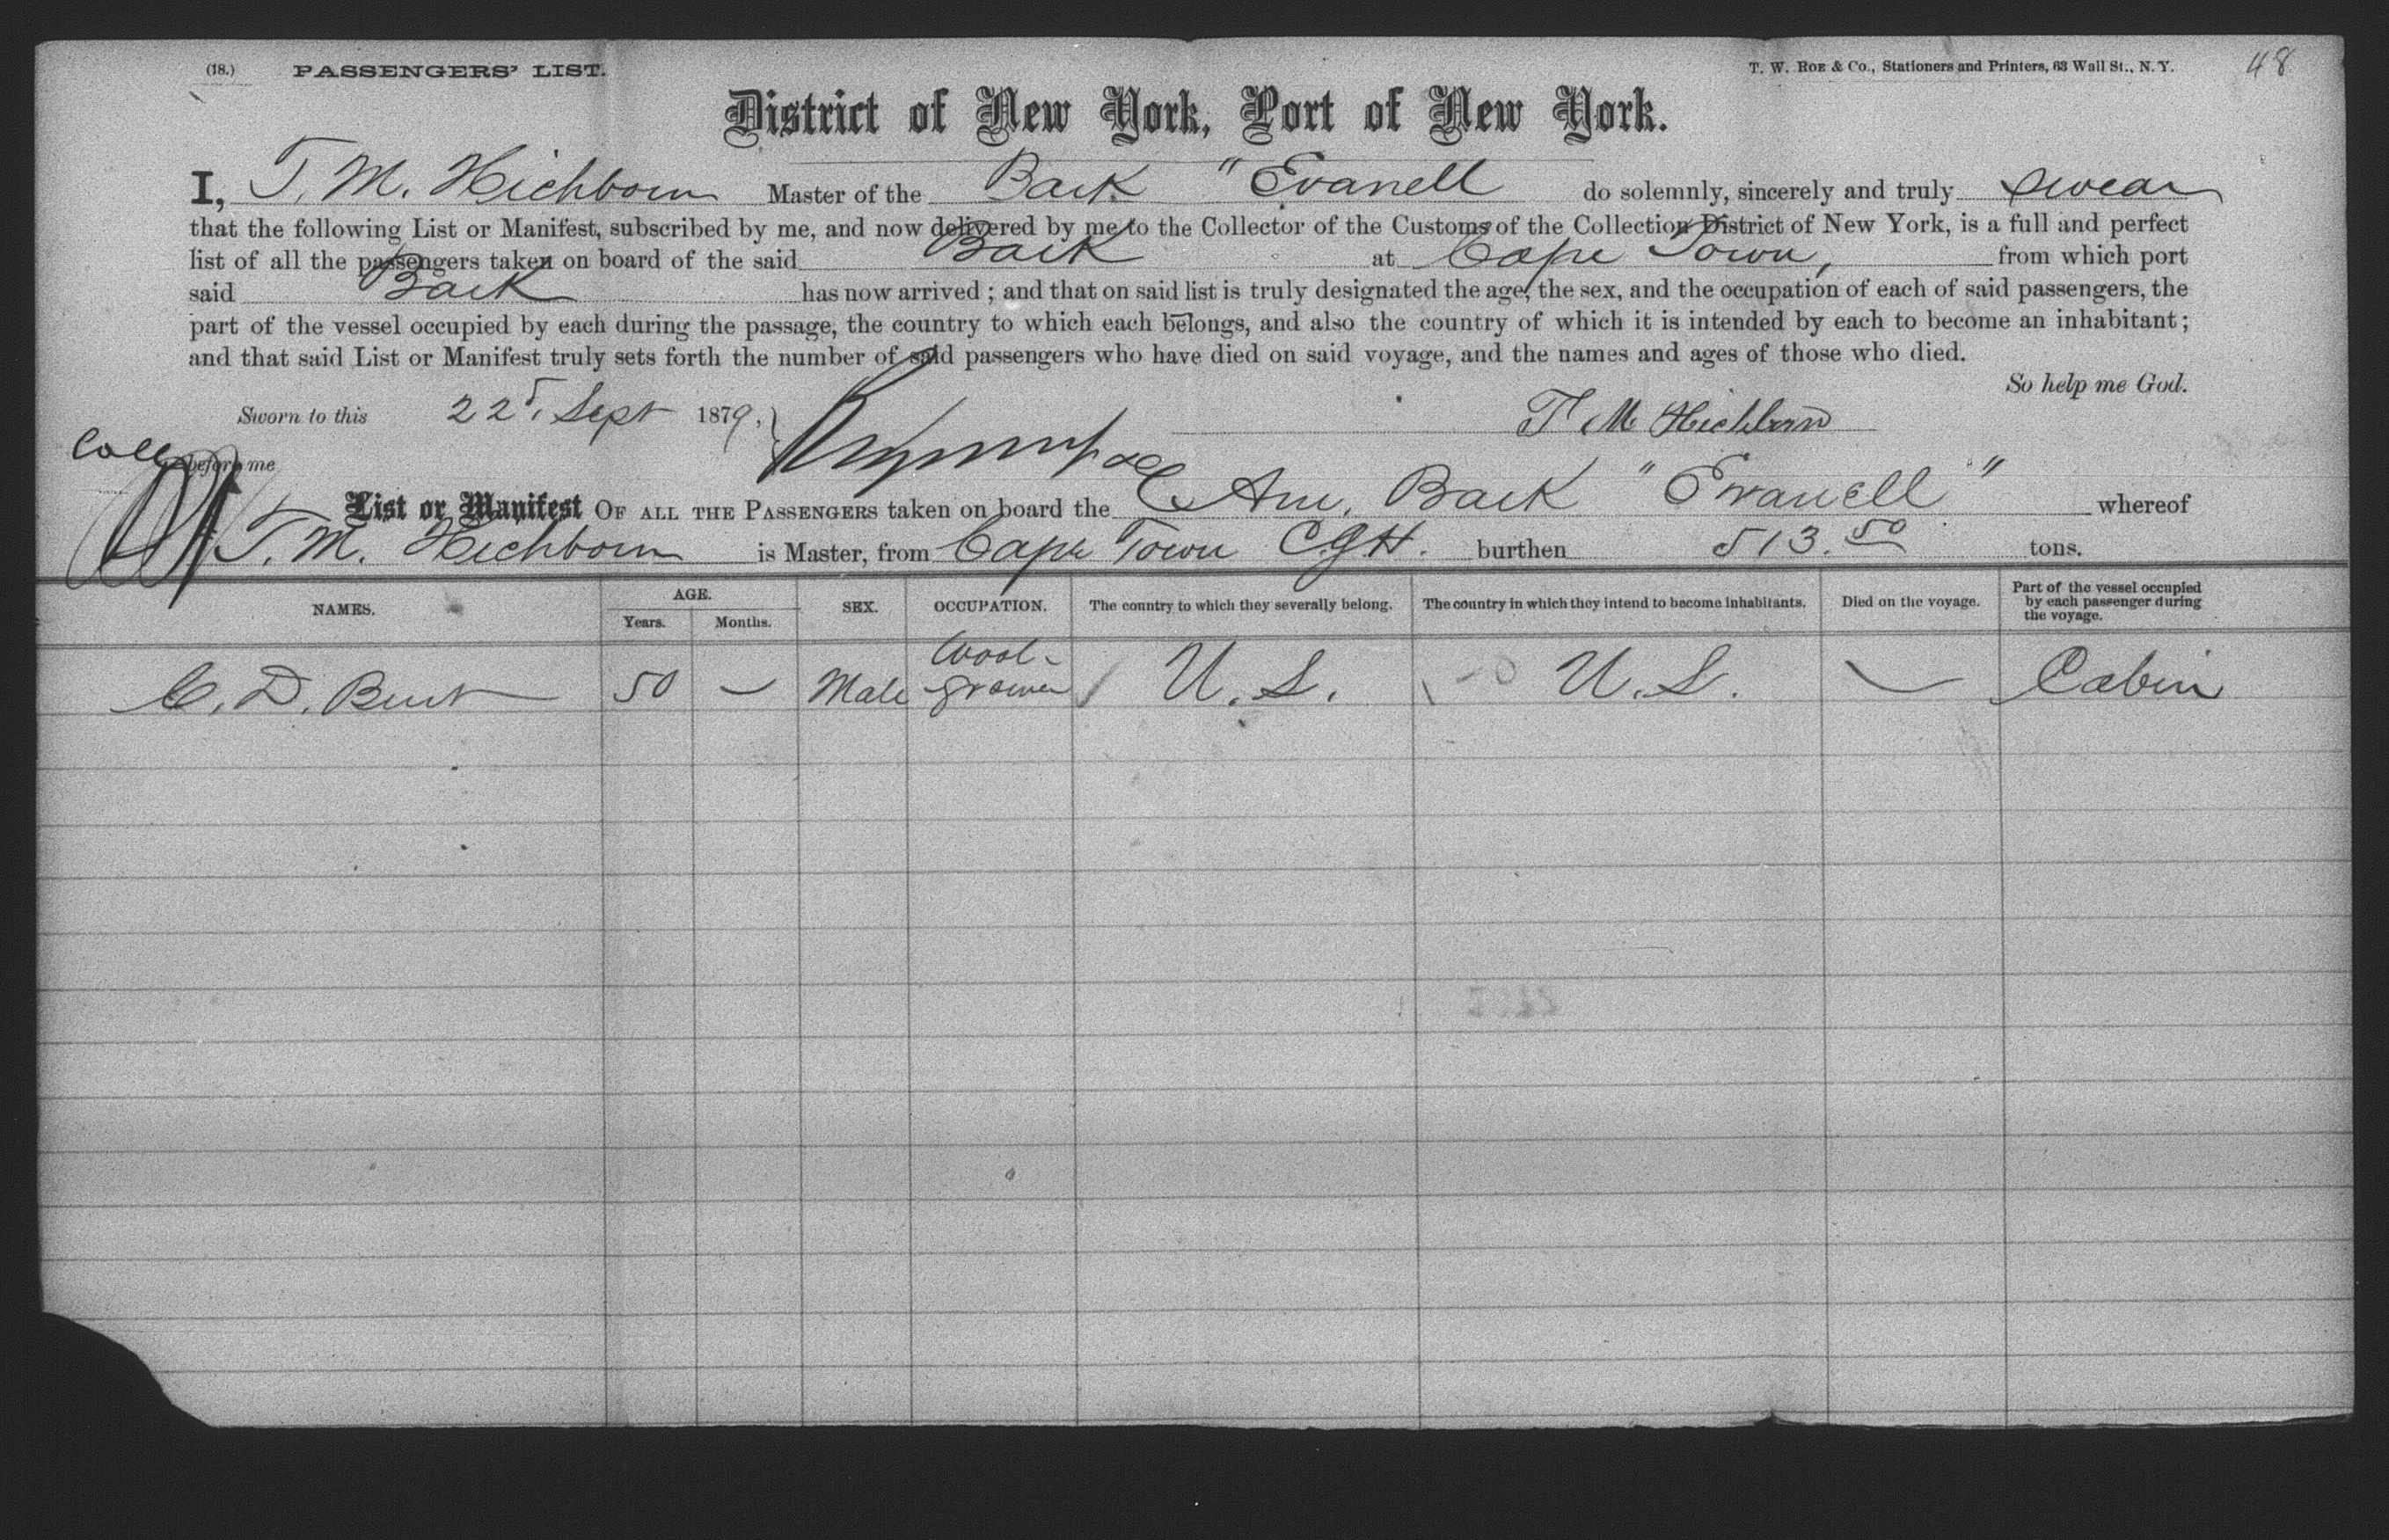 (18.) PASSENGERS' LIST. T. W. ROE & CO., Stationers and Printers, 63 Wall St., N. Y. 48
District of New York, Port of New York.
I, T. M. Hichborn Master of the Bark "Evanell do solemnly, sincerely and truly swear
that the following List or Manifest, subscribed by me, and now delivered by me to the Collector of the Customs of the Collection District of New York, is a full and perfect
list of all the passengers taken on board of the said Bark at Cape Town, from which port
said Bark has now arrived ; and that on said list is truly designated the age, the sex, and the occupation of each of said passengers, the
part of the vessel occupied by each during the passage, the country to which each belongs, and also the country of which it is intended by each to become an inhabitant ;
and that said List or Manifest truly sets forth the number of said passengers who have died on said voyage, and the names and ages of those who died.
So help me God.
Sworn to this 22d, Sept 1879. T M Hichborn
before me
List or Manifest OF ALL THE PASSENGERS taken on board the Am. Bark "Evanell" whereof
T. M. Hichborn is Master, from Cape Town C.G.H. burthen 513.50 tons.
NAMES. AGE. Years. Months. SEX. OCCUPATION. The country to which they severally belong. The country in which they intend to become inhabitants. Died on the voyage. Part of the vessel occupied by each passenger during the voyage.
C. D. Burt 50 — Male Wool-grower U. S. U. S. — Cabin